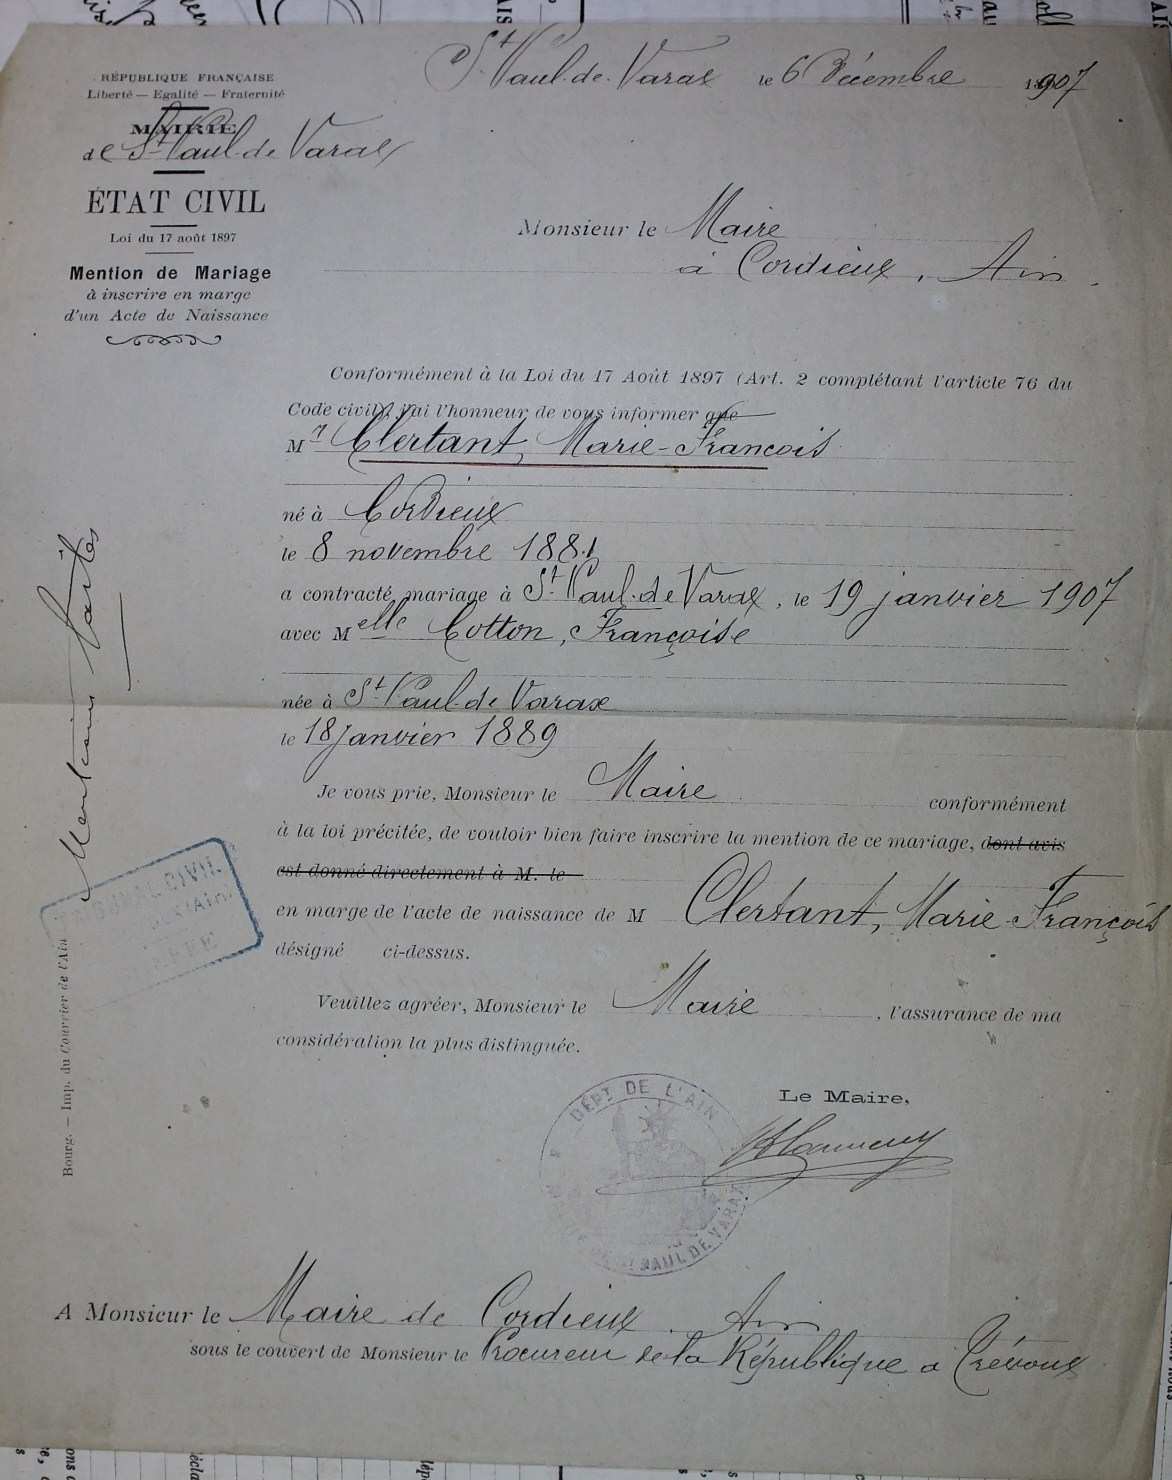 St Paul-de-Varax le 6 Décembre 1907
RÉPUBLIQUE FRANÇAISE
Liberté — Egalité — Fraternité
MAIRIE
de St Paul-de Varax
ÉTAT CIVIL
Loi du 17 août 1897
Mention de Mariage
à inscrire en marge
d'un Acte de Naissance
Monsieur le Maire
à Cordieux, Ain.
Conformément à la Loi du 17 Août 1897 (Art. 2 complétant l'article 76 du
Code civil), j'ai l'honneur de vous informer que
Mr Clertant, Marie-François
né à Cordieux
le 8 novembre 1881
a contracté mariage à St Paul-de Varax, le 19 janvier 1907
avec Melle Cotton, Françoise
née à St Paul-de Varax
le 18 janvier 1889
Je vous prie, Monsieur le Maire conformément
à la loi précitée, de vouloir bien faire inscrire la mention de ce mariage, dont avis
est donné directement à M. le
en marge de l'acte de naissance de M Clertant, Marie-François
désigné ci-dessus.
Veuillez agréer, Monsieur le Maire, l'assurance de ma
considération la plus distinguée.
Le Maire,
DÉPT DE L'AIN
ST PAUL DE VARAX
A Monsieur le Maire de Cordieux Ain
sous le couvert de Monsieur le Procureur de la République à Trévoux
Mentions faites
TRIBUNAL CIVIL
(AIN)
Bourg. — Imp. du Courrier de l'Ain